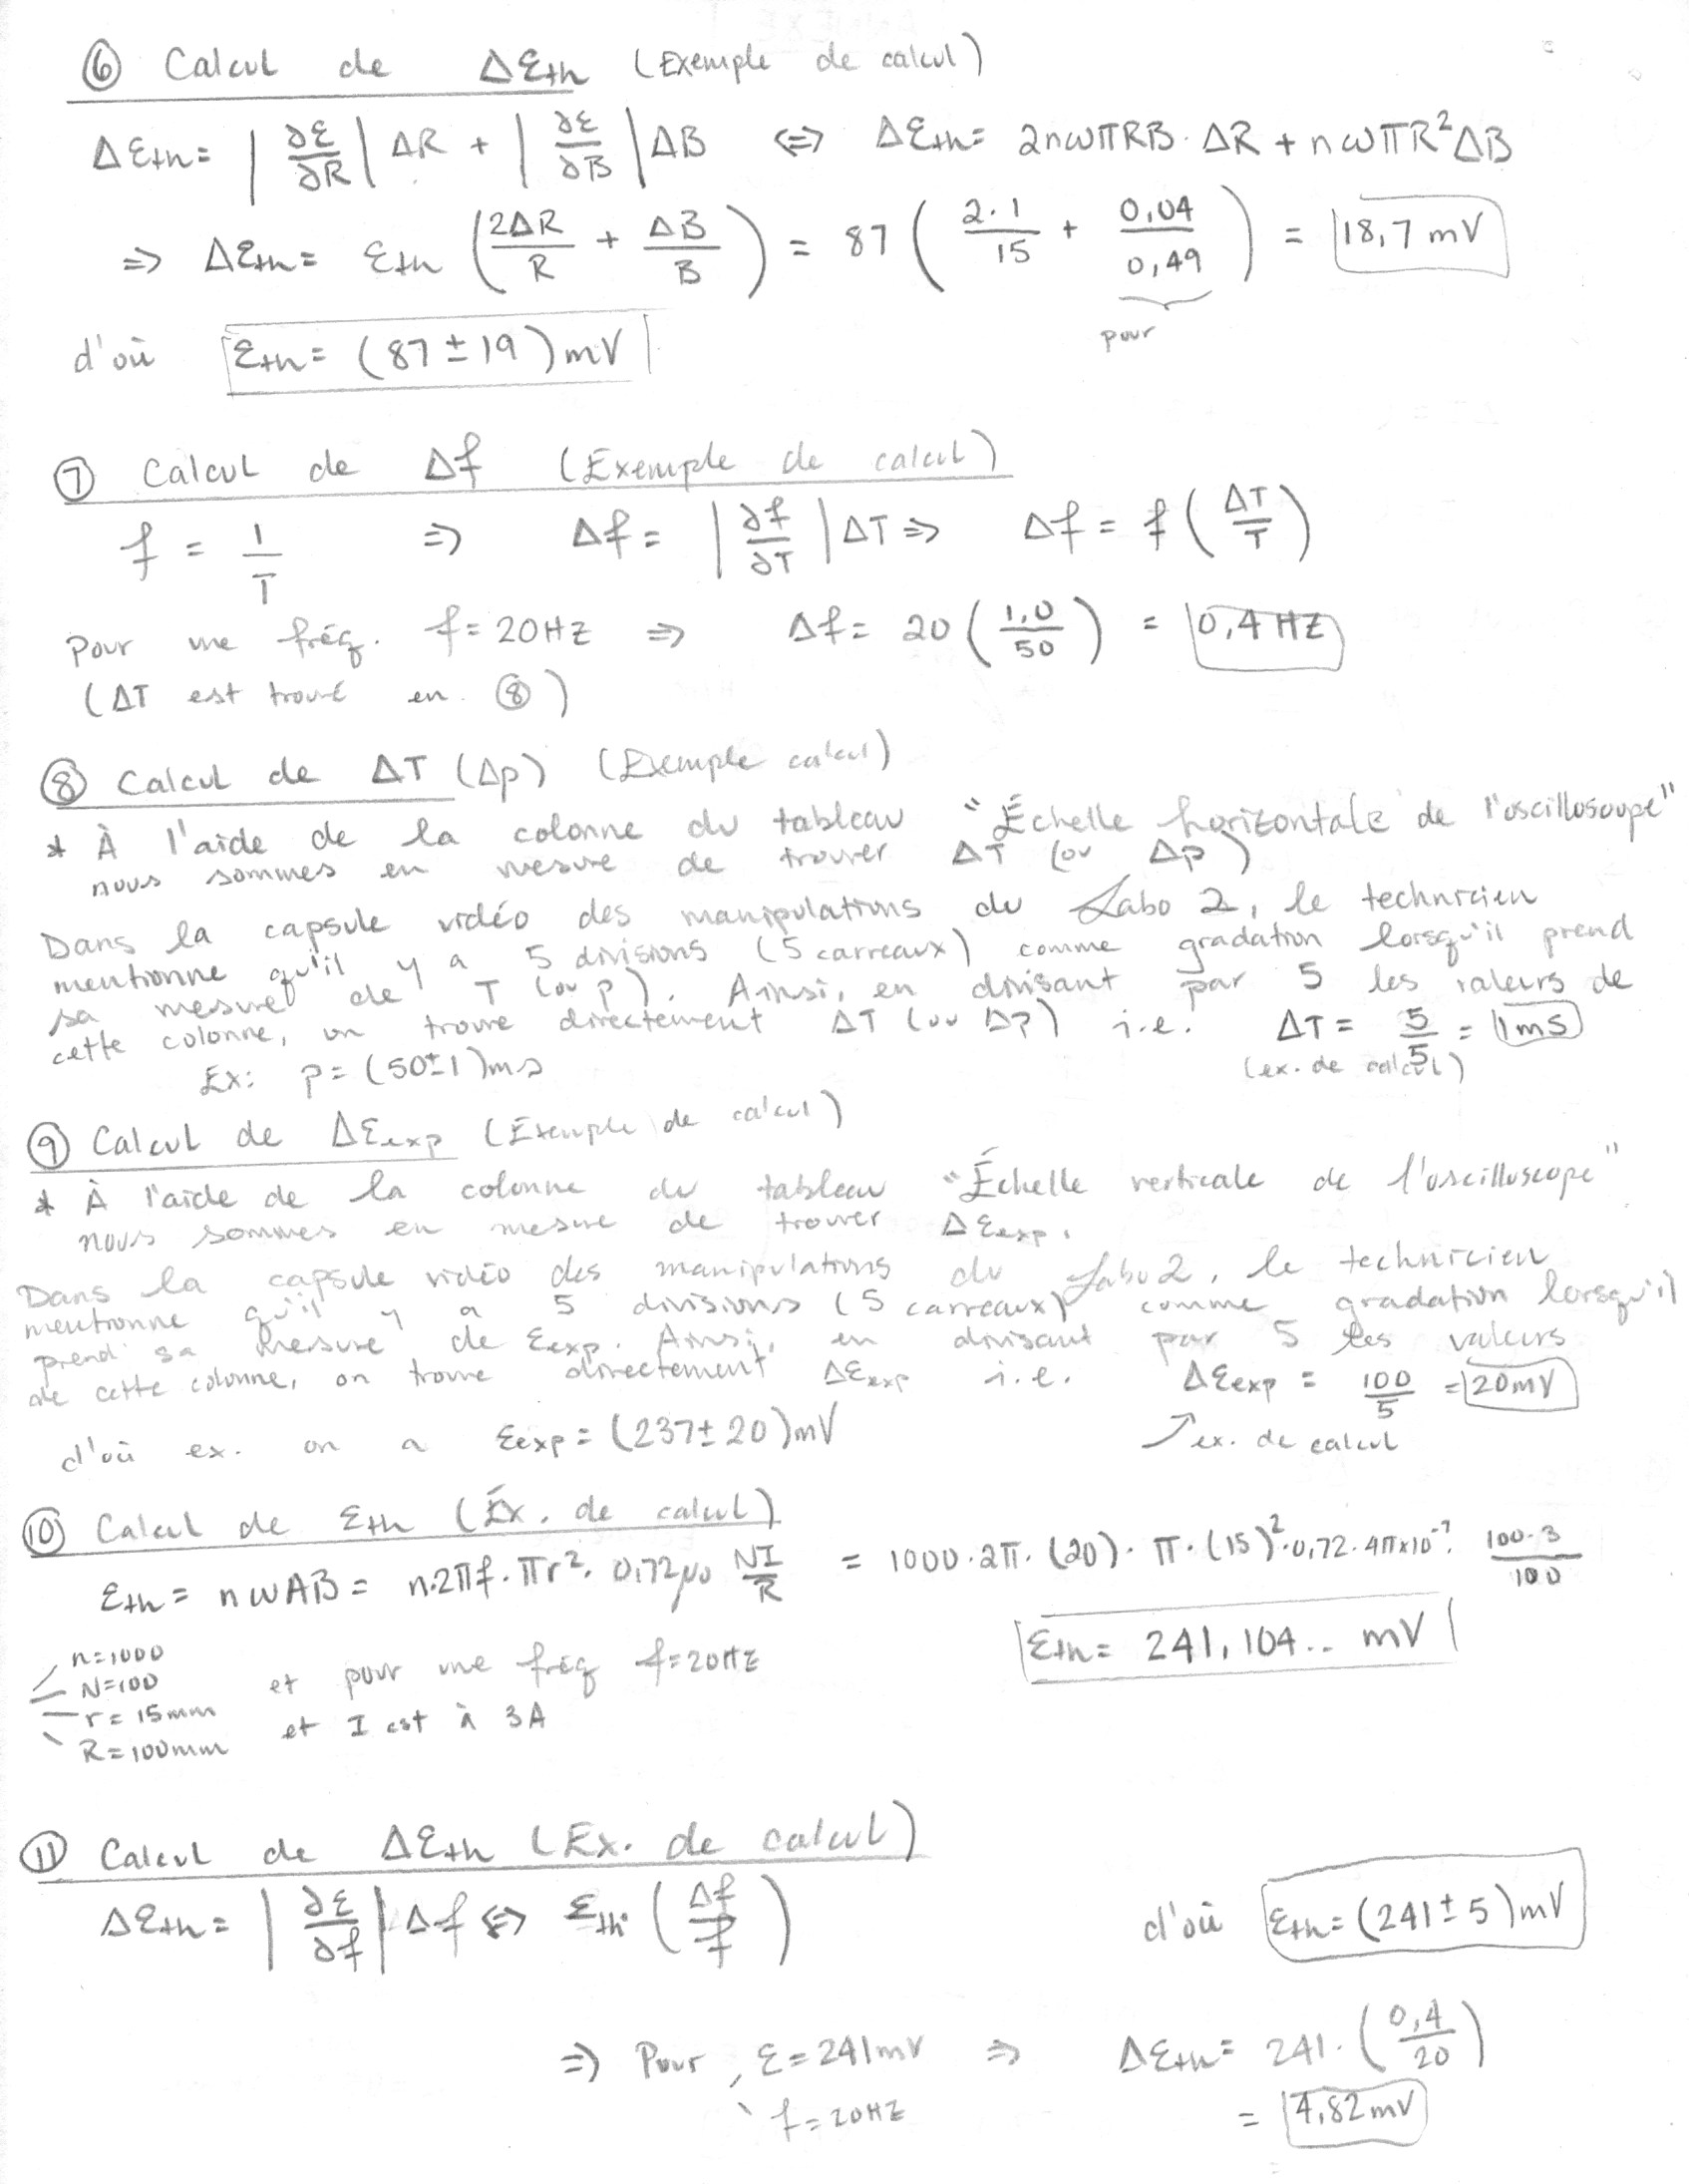 ⑥ Calcul de Δεth (Exemple de calcul)
Δεth = |∂ε/∂R| ΔR + |∂ε/∂B| ΔB ⇔ Δεth = 2nωπRB · ΔR + nωπR²ΔB
⇒ Δεth = εth (2ΔR/R + ΔB/B) = 87 (2·1/15 + 0,04/0,49) = 18,7 mV
pour
d'où εth = (87 ± 19) mV
⑦ Calcul de Δf (Exemple de calcul)
f = 1/T ⇒ Δf = |∂f/∂T| ΔT ⇒ Δf = f (ΔT/T)
Pour une fréq. f = 20HZ ⇒ Δf = 20 (1,0/50) = 0,4 HZ
(ΔT est trouvé en ⑧)
⑧ Calcul de ΔT (Δp) (Exemple calcul)
* À l'aide de la colonne du tableau "Échelle horizontale de l'oscilloscope"
nous sommes en mesure de trouver ΔT (ou Δp)
Dans la capsule vidéo des manipulations du Labo 2, le technicien
mentionne qu'il y a 5 divisions (5 carreaux) comme gradation lorsqu'il prend
sa mesure de T (ou p). Ainsi, en divisant par 5 les valeurs de
cette colonne, on trouve directement ΔT (ou Δp) i.e. ΔT = 5/5 = 1ms
(ex. de calcul)
Ex: p = (50±1)ms
⑨ Calcul de Δεexp (Exemple de calcul)
* À l'aide de la colonne du tableau "Échelle verticale de l'oscilloscope"
nous sommes en mesure de trouver Δεexp.
Dans la capsule vidéo des manipulations du Labo 2, le technicien
mentionne qu'il y a 5 divisions (5 carreaux) comme gradation lorsqu'il
prend sa mesure de εexp. Ainsi, en divisant par 5 les valeurs
de cette colonne, on trouve directement Δεexp i.e. Δεexp = 100/5 = 20mV
↗ ex. de calcul
d'où ex. on a εexp = (237± 20)mV
⑩ Calcul de εth (Éx. de calcul)
εth = nωAB = n·2πf·πr²· 0,72μ₀ NI/R = 1000·2π·(20)·π·(15)²·0,72·4π×10⁻⁷· 100·3/100
εth = 241,104.. mV
n=1000
N=100
r = 15mm
R = 100mm
et pour une fréq f=20HZ
et I est à 3A
⑪ Calcul de Δεth (Ex. de calcul)
Δεth = |∂ε/∂f| Δf ⇔ εth· (Δf/f)
d'où εth = (241 ± 5)mV
⇒ Pour ε = 241mV ⇒ Δεth = 241·(0,4/20)
f = 20HZ
= 4,82mV